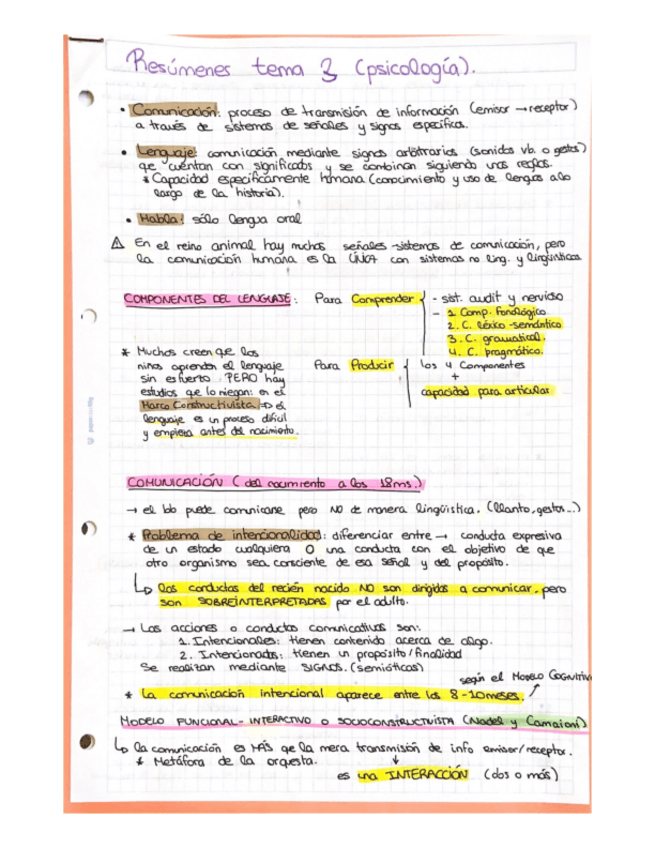 Resúmenes tema 3 (psicología).
• Comunicación: proceso de transmisión de información (emisor → receptor)
a través de sistemas de señales y signos específicos.
• Lenguaje: comunicación mediante signos arbitrarios (sonidos vb. o gestos)
que cuentan con significados y se combinan siguiendo unas reglas.
* Capacidad específicamente humana (conocimiento y uso de lenguas a lo
largo de la historia).
• Habla: sólo lengua oral
⚠ En el reino animal hay muchos señales-sistemas de comunicación, pero
la comunicación humana es la ÚNICA con sistemas no ling. y lingüísticos.
COMPONENTES DEL LENGUAJE: Para Comprender { - sist. audit y nervioso
- 1. Comp. Fonológico
2. C. léxico-semántico
3. C. gramatical.
4. C. pragmático.
* Muchos creen que los
niños aprenden el lenguaje
sin esfuerzo. PERO hay
estudios que lo niegan: en el
Marco Constructivista => el
lenguaje es un proceso difícil
y empieza antes del nacimiento.
Para Producir { los 4 Componentes
+
capacidad para articular
COMUNICACIÓN (del nacimiento a los 18ms.)
→ el bb puede comunicarse pero NO de manera lingüística. (llanto, gestos...)
* Problema de intencionalidad: diferenciar entre → conducta expresiva
de un estado cualquiera O una conducta con el objetivo de que
otro organismo sea consciente de esa señal y del propósito.
↳ las conductas del recién nacido NO son dirigidas a comunicar, pero
son SOBREINTERPRETADAS por el adulto.
→ Las acciones o conductas comunicativas son:
1. Intencionales: tienen contenido acerca de algo.
2. Intencionadas: tienen un propósito/finalidad
Se realizan mediante SIGNOS. (semióticos)
según el Modelo Cognitivo
* La comunicación intencional aparece entre los 8-10meses. ↗
MODELO FUNCIONAL-INTERACTIVO O SOCIOCONSTRUCTIVISTA (Nadel y Camaioni)
↳ la comunicación es MÁS que la mera transmisión de info emisor/receptor.
* Metáfora de la orquesta. ↓
es una INTERACCIÓN (dos o más)